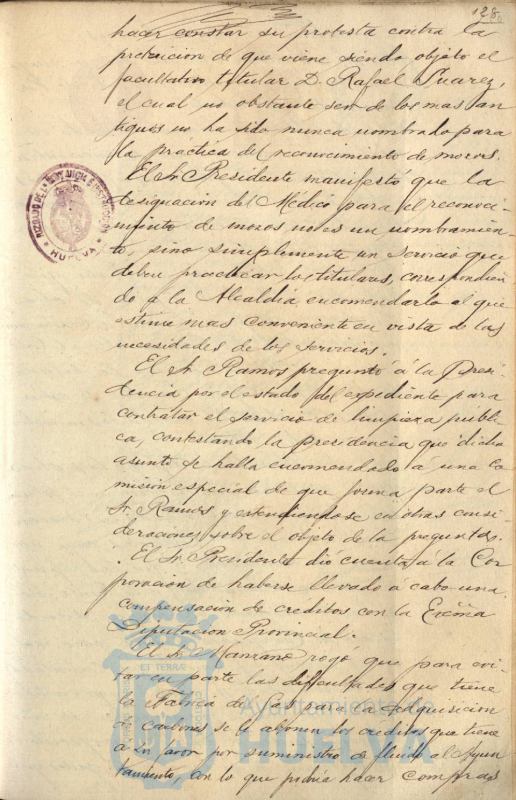 128
hacer constar su protesta contra la
pretericion de que viene siendo objeto el
facultativo titular D. Rafael Suarez,
el cual no obstante ser de los mas an
tiguos no ha sido nunca nombrado para
la practica del reconocimiento de mozos.
El Sr Presidente manifestó que la
designacion del Médico para el reconoci-
miento de mozos no es un nombramien-
to, sino simplemente un servicio que
deben practicar los titulares, correspondien
do á la Alcaldia encomendarlo al que
estime mas conveniente en vista de las
necesidades de los servicios.
El Sr Ramos preguntó á la Presi-
dencia por el estado del expediente para
contratar el servicio de limpieza publi-
ca, contestando la presidencia que dicho
asunto se halla encomendado á una Co
mision especial de que forma parte el
Sr. Ramos y extendiendose en otras consi-
deraciones sobre el objeto de la pregunta.
El Sr. Presidente dió cuenta á la Cor
poracion de haberse llevado á cabo una
compensacion de créditos con la Excma
Diputacion Provincial.
El Sr Manzano rogó que para evi-
tar en parte las dificultades que tiene
la Fabrica de Gas para la adquisicion
de carbones se le abonen los creditos que tiene
a su favor por suministro de fluido al Ayun
tamiento, con lo que podria hacer compras
HUELVA
ET TERRÆ
Ayuntamiento
HUELVA